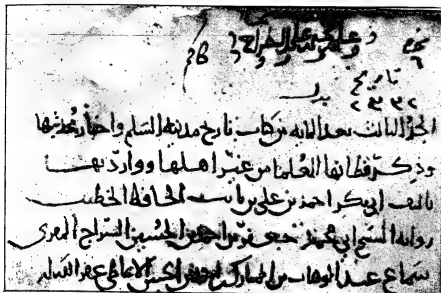 تاريخ
الجزء الثالث بعد المائه من كتاب تاريخ مدينه السلم واخبار محدثيها
وذكر قطانها العلما من غير اهلها ووارديها
تاليف ابي بكر احمد بن علي بن ثابت الحافظ الخطيب
روايه الشيخ ابي محمد جعفر بن احمد بن الحسين السراج المقري
سماع عبد الوهاب بن المبارك بن احمد بن الحسن الانماطي غفر الله له